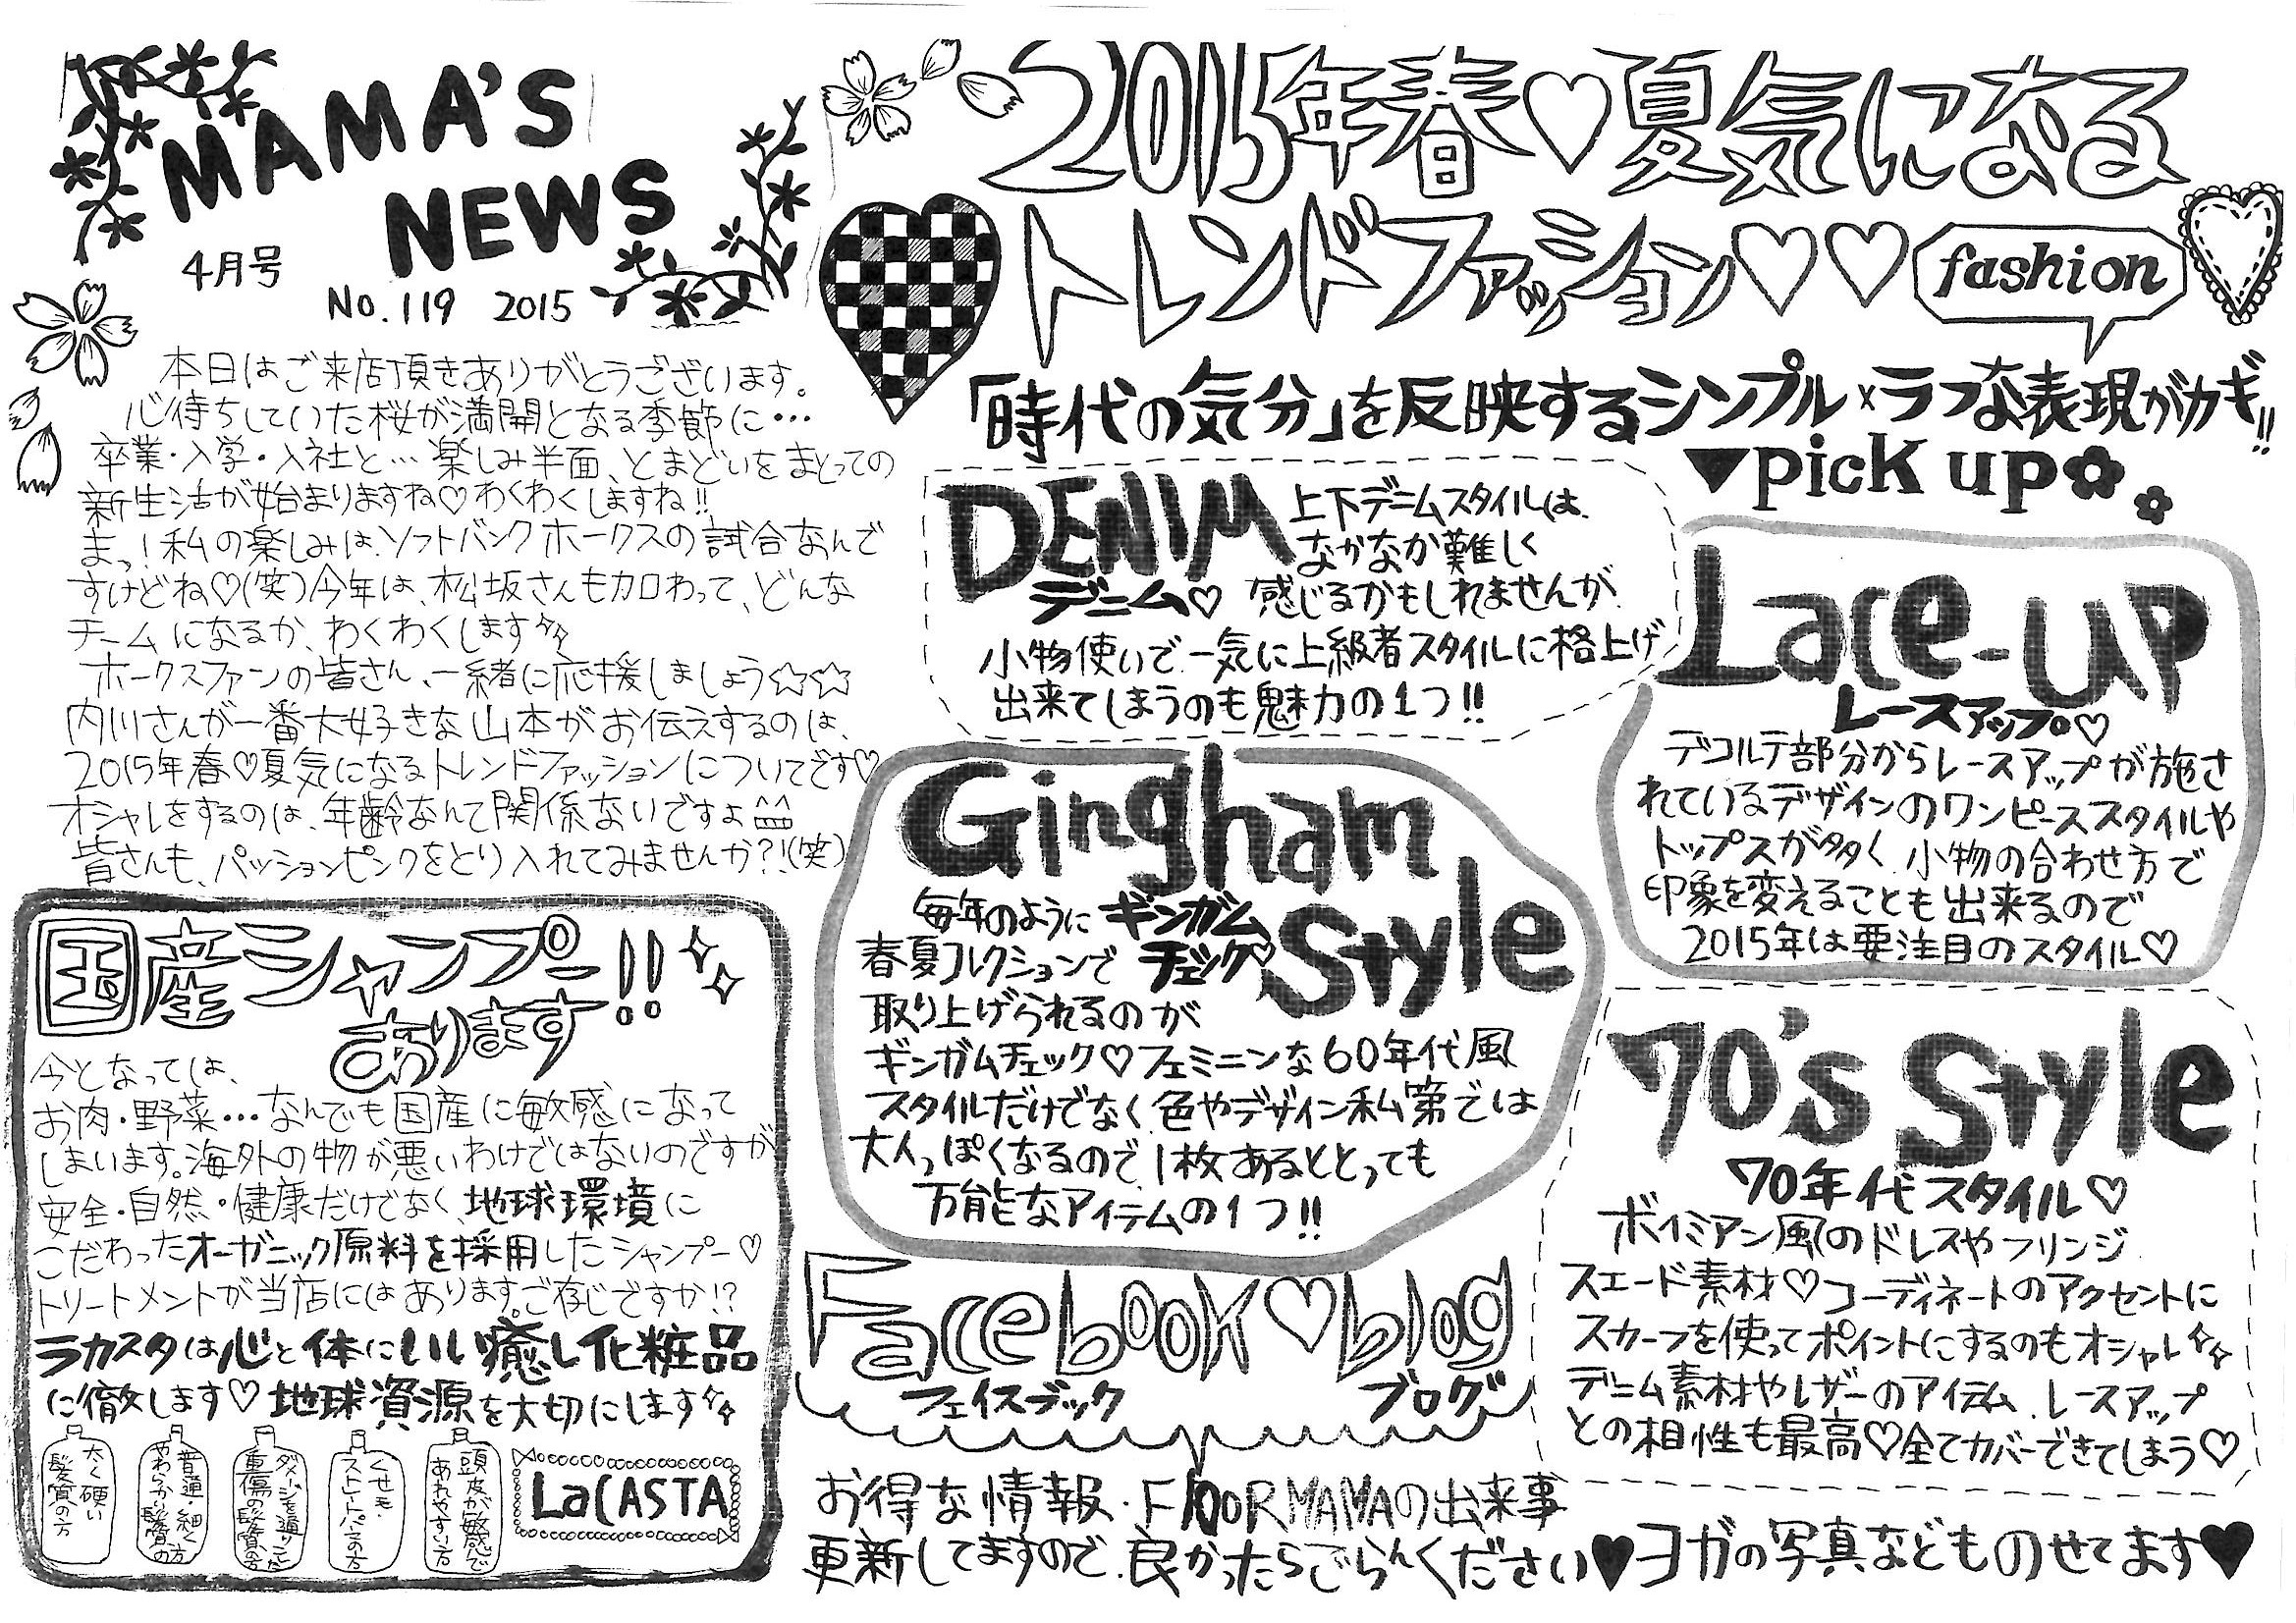 MAMA'S
NEWS
4月号
No.119 2015
本日はご来店頂きありがとうございます。
心待ちしていた桜が満開となる季節に…
卒業・入学・入社と…楽しみ半面、とまどいをまとっての
新生活が始まりますね♡わくわくしますね!!
まっ!私の楽しみは、ソフトバンクホークスの試合なんで
すけどね♡(笑)今年は、松坂さんも加わって、どんな
チームになるか、わくわくします
ホークスファンの皆さん、一緒に応援しましょう☆☆
内川さんが一番大好きな山本がお伝えするのは、
2015年春♡夏気になるトレンドファッションについてです♡
オシャレをするのは、年齢なんて関係ないですよ^^
皆さんも、パッションピンクをとり入れてみませんか?!(笑)
国産シャンプー
あります!!
今となっては、
お肉・野菜…なんでも国産に敏感になって
しまいます。海外の物が悪いわけではないのですが
安全・自然・健康だけでなく、地球環境に
こだわったオーガニック原料を採用したシャンプー♡
トリートメントが当店にはあります。ご存じですか!?
ラカスタは心と体にいい癒し化粧品
に徹します♡地球資源を大切にします
太く硬い
髪質の方
普通・細く
やわらかい髪質の方
ダメージを通りこした
重傷の髪質の方
くせ毛・
ストレートパーマの方
頭皮が敏感で
あれやすい方
LaCASTA
2015年春♡夏気になる
トレンドファッション♡♡
fashion
「時代の気分」を反映するシンプル×ラフな表現がカギ!!
▼pick up
DENIM
デニム♡
上下デニムスタイルは、
なかなか難しく
感じるかもしれませんが、
小物使いで、一気に上級者スタイルに格上げ
出来てしまうのも魅力の1つ!!
Lace-UP
レースアップ♡
デコルテ部分からレースアップが施さ
れているデザインのワンピーススタイルや
トップスが多く、小物の合わせ方で
印象を変えることも出来るので
2015年は要注目のスタイル♡
Gingham
Style
ギンガム
チェック♡
毎年のように
春夏コレクションで
取り上げられるのが
ギンガムチェック♡フェミニンな60年代風
スタイルだけでなく、色やデザイン私第では
大人っぽくなるので、1枚あるととっても
万能なアイテムの1つ!!
70's Style
70年代スタイル♡
ボイミアン風のドレスやフリンジ
スエード素材♡コーディネートのアクセントに
スカーフを使ってポイントにするのもオシャレ
デニム素材やレザーのアイテム、レースアップ
との相性も最高♡全てカバーできてしまう♡
Facebook♡blog
フェイスブック ブログ
お得な情報・FlooR MAMAの出来事
更新してますので、良かったらごらんください♥ヨガの写真などものせてます♥